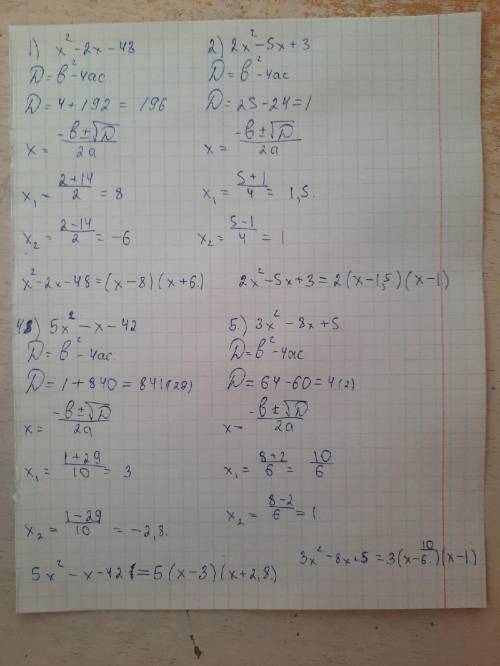 1) x²-2x-48
D=b²-4ac.
D=4+192=196
x= (-b±√D)/2a
x₁= (2+14)/2 = 8
x₂= (2-14)/2 = -6
x²-2x-48=(x-8)(x+6.)
2) 2x²-5x+3
D=b²-4ac
D=25-24=1
x= (-b±√D)/2a
x₁= (5+1)/4 = 1,5.
x₂= (5-1)/4 = 1
2x²-5x+3=2(x-1,5)(x-1)
4) 5x²-x-42
D=b²-4ac.
D=1+840=841(29)
x= (-b±√D)/2a
x₁= (1+29)/10 = 3
x₂= (1-29)/10 = -2,8.
5x²-x-42=5(x-3)(x+2,8)
5.) 3x²-8x+5
D=b²-4ac
D=64-60=4(2)
x- (-b±√D)/2a
x₁= (8+2)/6 = 10/6
x₂= (8-2)/6 = 1
3x²-8x+5=3(x-10/6.)(x-1)